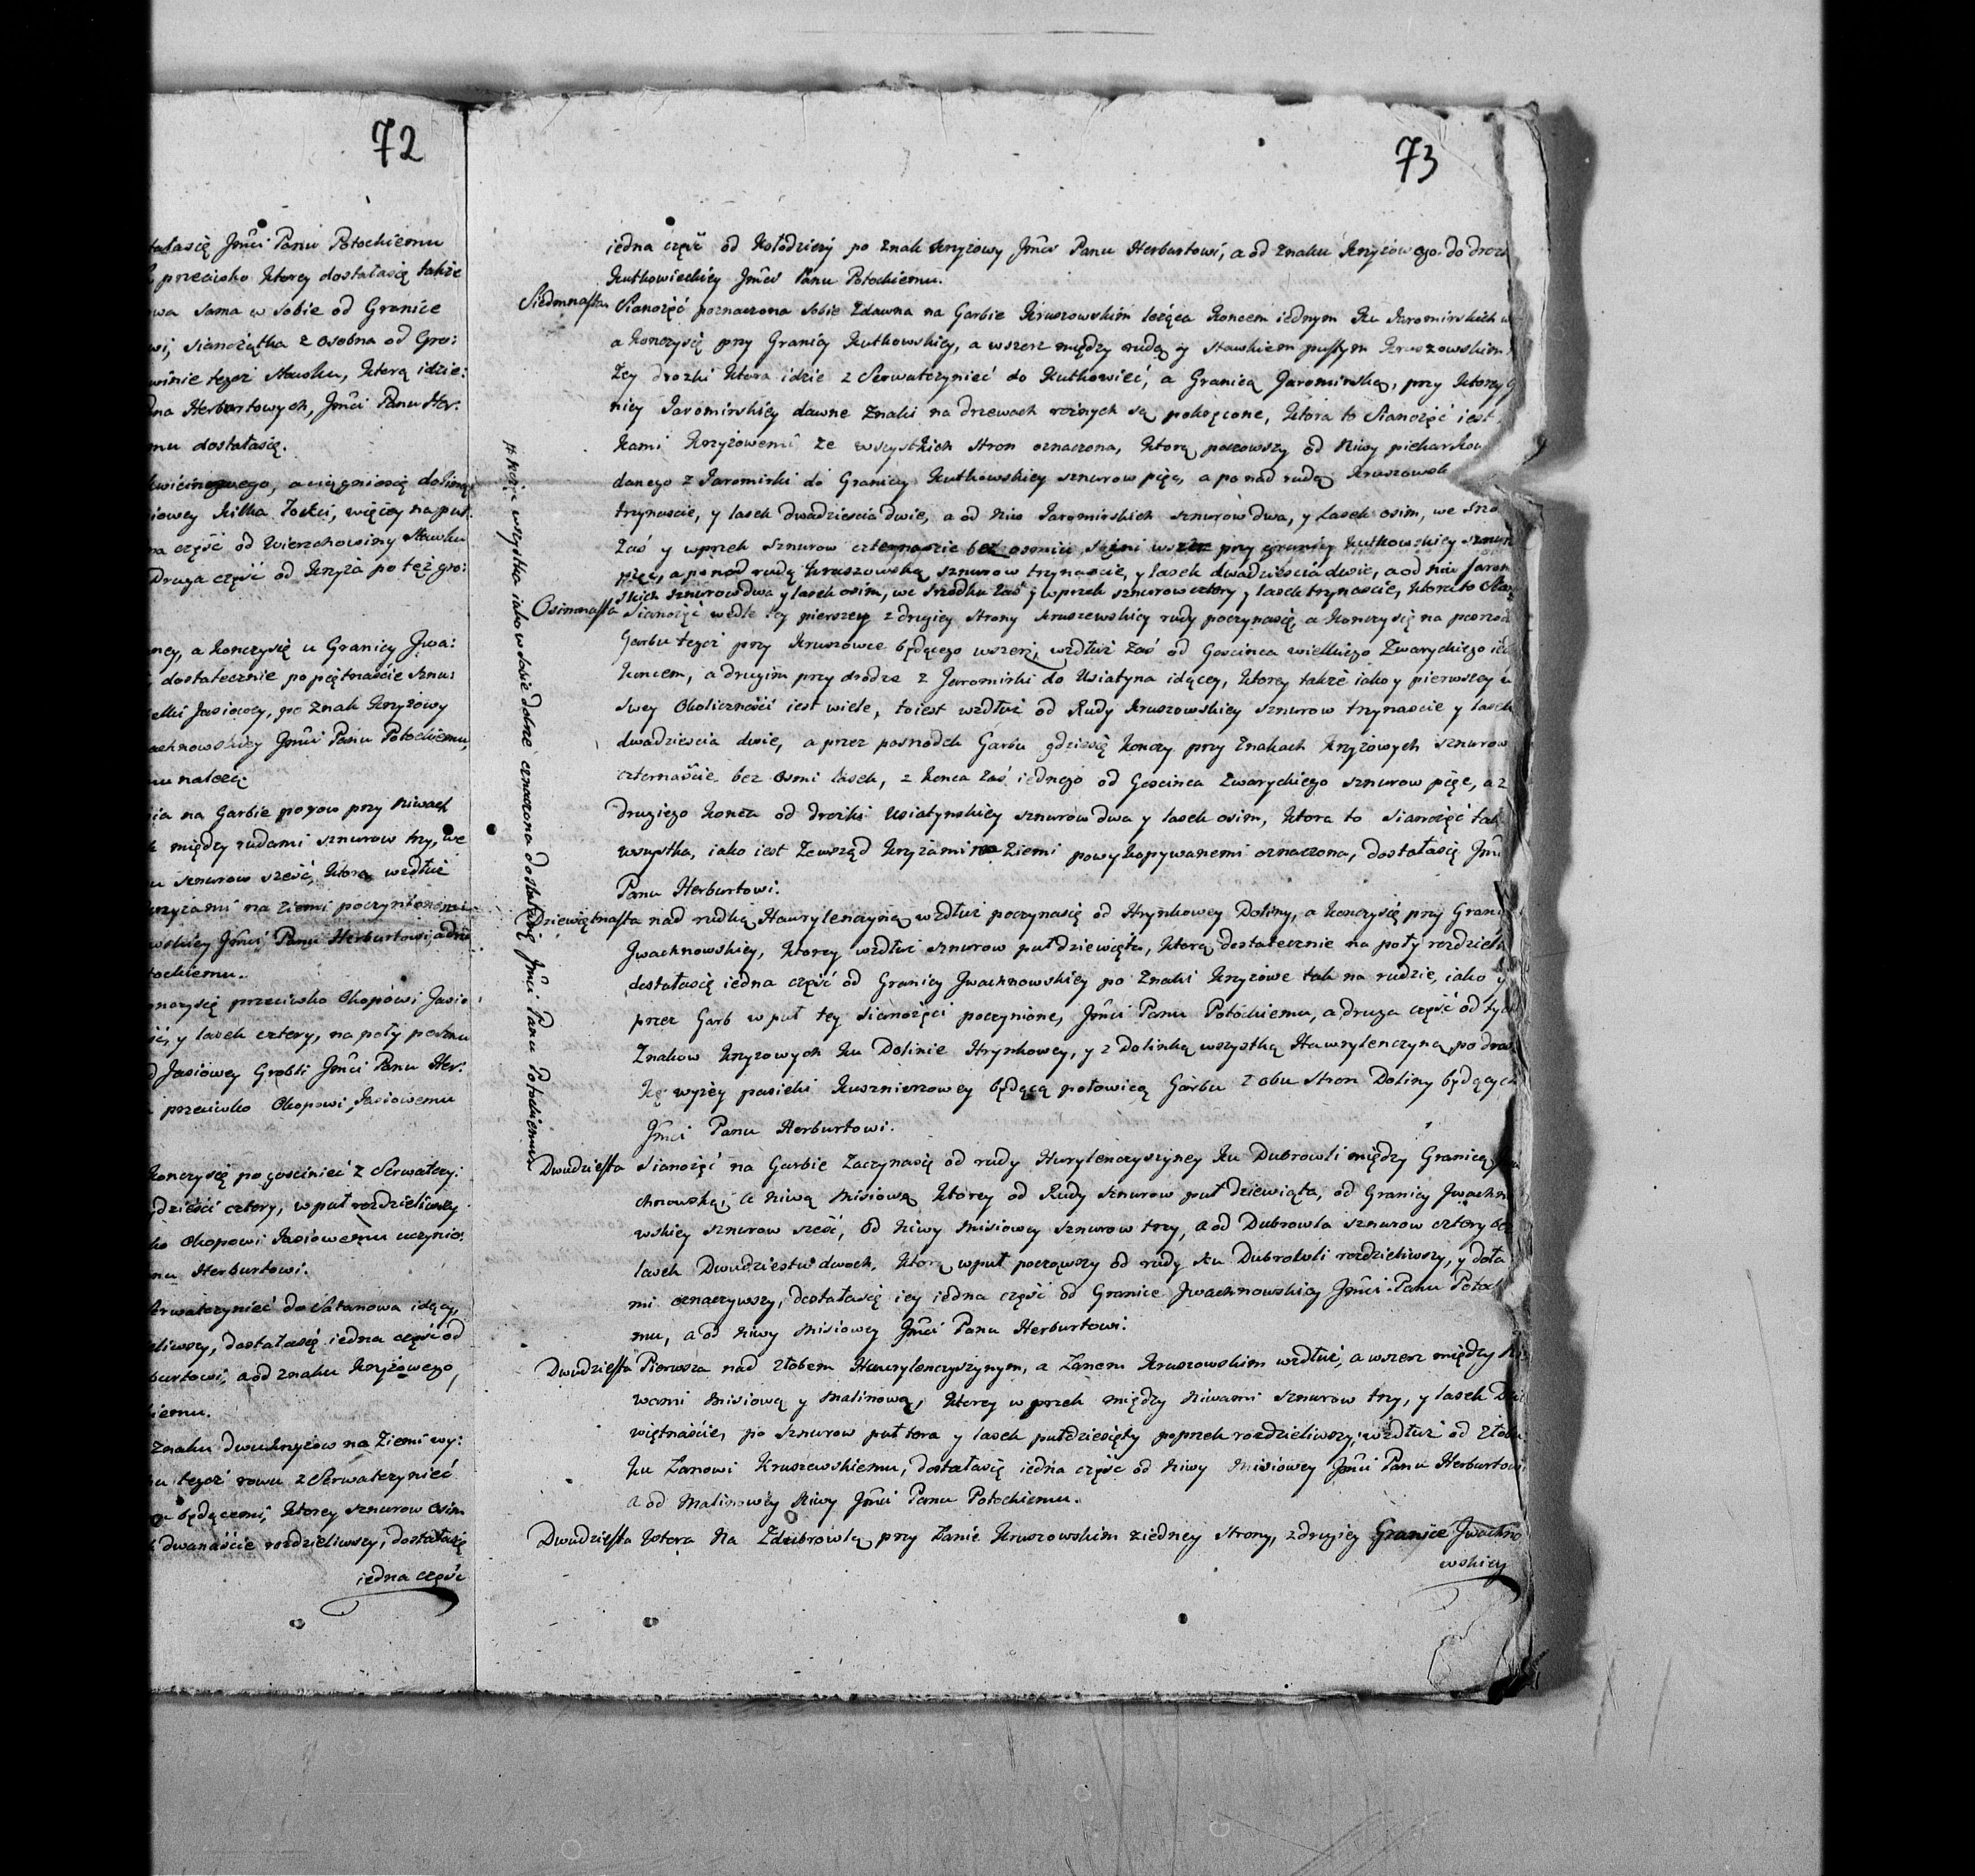 72
tałasię Jmći Panu Potockiemu
przeciwko ktorey dostałasię także
wa sama w sobie od Granice
wi, sianożątka z osobna od Gro:
winie tegoż Stawku, ktorą idzie:
na Herburtowych, Jmći Panu Her:
mu dostałasię.
a ciągniesię doliną
iowey kilka Łokci, więcey na puł
na część od Wierzchowiny Stawku
Druga część od krzyża po też gro:
ney, a konczysię u Granicy Jwa:
dostatecznie po piętnaście sznu:
elki Jasiowey, po Znak krzyżowy
achnowskiey Jmći Panu Potockiemu,
mu należą
ia na Garbie poyow przy Niwach
między rudami sznurow trzy, we
u sznurow sześć, ktora wzdłuż
krzyżami na ziemi poczynionemi
wskiey Jmći Panu Herburtowi, a dru
tockiemu.
onczysię przeciwko Okopowi Jasio:
y lasek cztery, na poły
d Jasiowey Grobli Jmći Panu Her:
przeciwko Okopowi Jasiowemu
konczysię po gosciniec z Serwatczy:
dzieści cztery, w puł rozdzieliwszy
ko Okopowi Jasiowemu uczynio:
nu Herburtowi.
Serwatczyniec do Satanowa idący,
eliwszy, dostałasię iedna część od
burtowi, a od znaku krzyżowego,
kiemu.
Znaku dwu krzyżow na Ziemi wy:
u tegoż rowu z Serwatczyniec
będącemi, ktorey sznurow osim
dwanaście rozdzieliwszy, dostałasię
iedna część
73
iedna część od Kołodzieży po znak krzyżowy Jmći Panu Herburtowi, a od znaku krzyżowego do droż
Kutkowieckiey Jmći Panu Potockiemu.
Siedmnasta Sianożęć poznaczona sobie zdawna na Garbie Kruszowskim leżąca koncem iednym ku Jaromirskich
a konczysię przy Granicy Kutkowskiey, a wszerz między rudą y stawkiem pustym Kruszowskim
żey drożki ktora idzie z Serwatczyniec do Kutkowiec, a Granicą Jaromirską, przy ktorey
nicy Jaromirskiey dawne Znaki na drzewach rożnych są pokręcone, ktora to Sianożęć iest
kami krzyżowemi ze wszystkich stron oznaczona, ktorą począwszy od Niwy piekarsko
danego z Jaromirki do Granicy Kutkowskiey sznurow pięc, a ponad rudą Kruszowsk
trzynascie, y lasek dwadziescia dwie, a od niw Jaromirskich sznurow dwa, y lasek osim, we srzo
Zaś y wprzek sznurow czternascie bez osmiu sążni wszerz przy granicy Kutkowskiey sznur
pięc, a ponad rudą Kruszowską sznurow trzynascie, y lasek dwadziescia dwie, a od niw Jarom
skich sznurow dwa y lasek osim, we srzodku zaś y wprzek sznurow cztery y lasek trzynascie, ktora to
# koża wszystka iako w sobie dobrze oznaczona dostałasię Jmći Panu Potockiemu
Osimnasta Sianożęć wedle tey pierszey z drugiey strony Kruszewskiey rudy poczynasię, a konczysię na posrzod
Garbu tegoż przy Kruszowce będącego wszerz, wzdłuż zaś od Goscinca wielkiego Zwaryckiego ied
koncem, a drugim przy drodze z Jaromirki do Usiatyna idącey, ktorey także iako y pierwszey
swey Okoliczności iest wiele, toiest wzdłuż od Rudy Kruszowskiey sznurow trzynascie y lasek
dwadziescia dwie, a przez posrzodek Garbu gdziesię konczy przy znakach krzyżowych sznurow
czternaście bez osmi lasek, z konca zaś iednego od Goscinca Zwaryckiego sznurow pięc, a z
drugiego konca od drożki Usiatynskiey sznurow dwa y lasek osim, ktora to Sianożęć tak
wszystka, iako iest zewsząd krzyżami na ziemi powykopywanemi oznaczona, dostałasię Jmć
Panu Herburtowi.
Dziewiętnasta nad rudką Hawrylenczyną wzdłuż poczynasię od Hrynkowey Doliny, a konczysię przy Grani
Jwachnowskiey, ktorey wzdłuż sznurow pułdziewięta, ktorą dostatecznie na poły rozdzieli
dostałasię iedna część od Granicy Jwachnowskiey po Znaki krzyżowe tak na rudzie, iako y
przez Garb w puł tey sianożęci poczynione, Jmći Panu Potockiemu, a druga część od tych
Znakow krzyżowych ku Dolinie Hrynkowey, y z Dolinką wszystką Hawrylenczyną po droż
kę wyżey pasieki Kusznierzowey będącą połowicą Garbu z obu stron Doliny będących
Jmći Panu Herburtowi.
Dwudziesta Sianożęć na Garbie Zaczynasię od rudy Hwrylenczyszyney ku Dubrowli między Granicą
chnowską, a Niwą Misiową ktorey od Rudy sznurow puł dziewiąta, od Granicy Jwachn
wskiey sznurow sześć, od Niwy Misiowey sznurow trzy, a od Dubrowla sznurow cztery bez
lasek Dwudziestu dwoch, ktorą wpuł począwszy od rudy ku Dubrowli rozdzieliwszy, y doła
mi oznaczywszy, dostałasię iey iedna część od Granice Jwachnowskiey Jmći Panu Potock
mu, a od Niwy Misiowey Jmći Panu Herburtowi.
Dwudziesta Pierwsza nad złobem Hawrylenczyszynym, a Łanem Kruszowskim wzdłuż, a wszerz między Ni
wami Misiową y Malinową, ktorey w przek między Niwami sznurow trzy, y lasek Dzie
więtnaście, po sznurow puł tora y lasek pułdziesięty poprzek rozdzieliwszy, wzdłuż od złobu
ku Łanowi Kruszewskiemu, dostałasię iedna część od Niwy Misiowey Jmći Panu Herburtowi
a od Malinowey Niwy Jmći Panu Potockiemu.
Dwudziesta Wtora Na Zdubrowlą przy Łanie Kruszowskim ziedney strony, zdrugiey Granice Jwachno
wskiey